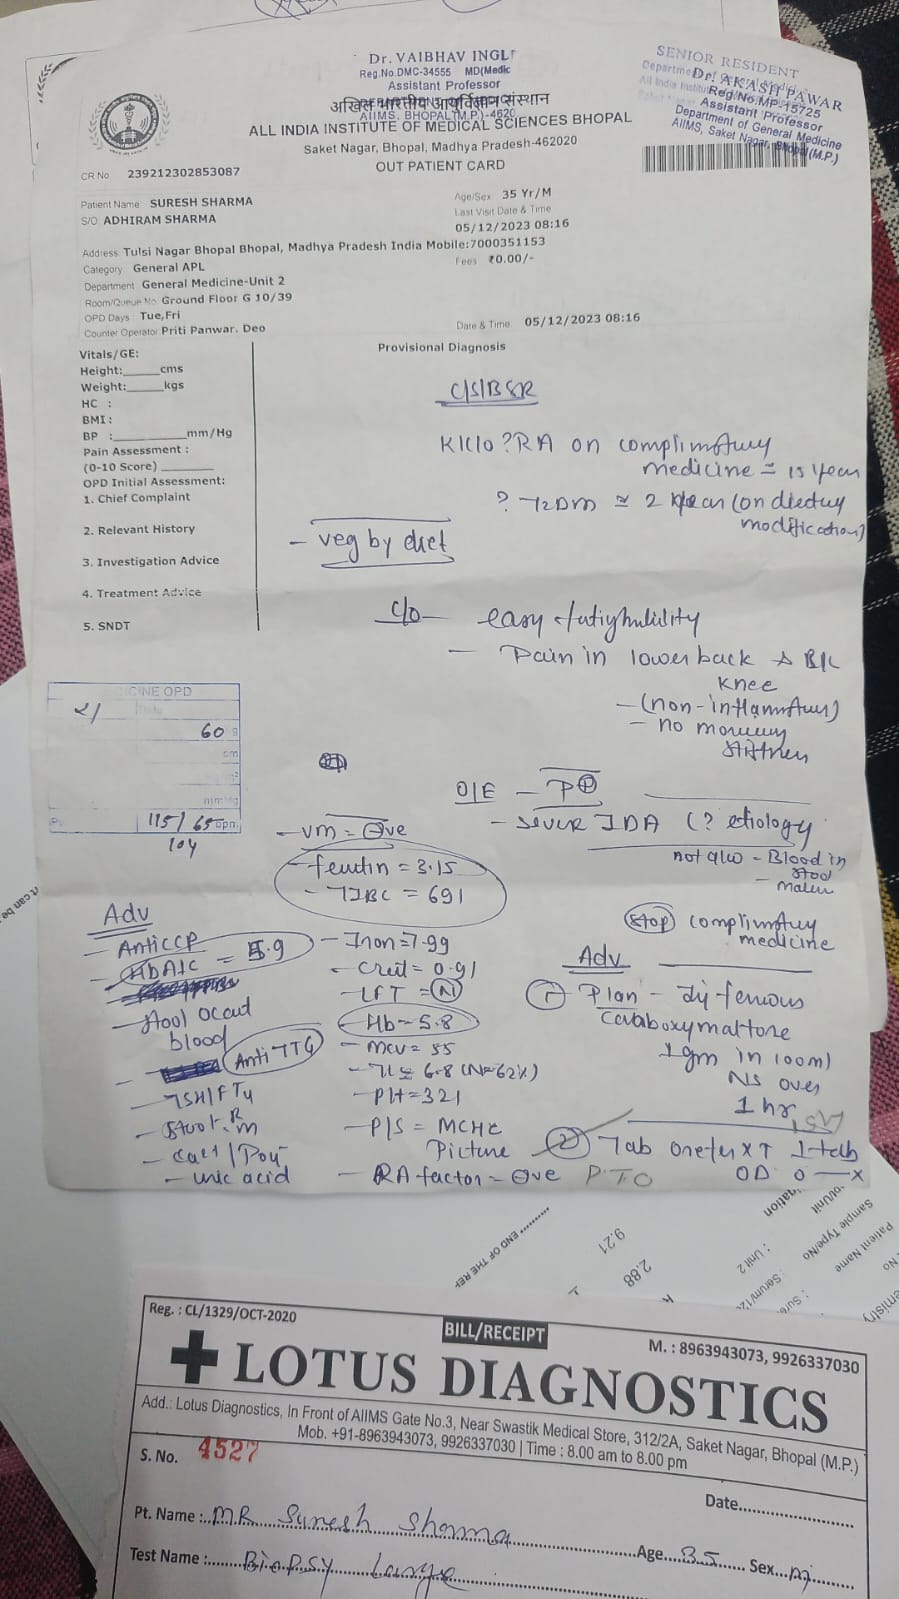 Dr. VAIBHAV INGL
Reg.No.DMC-34555 MD(Medic
Assistant Professor
AIIMS, BHOPAL (M.P.)-4620
SENIOR RESIDENT
Dr. AKASH PAWAR
Reg.No.MP-15725
Assistant Professor
Department of General Medicine
AIIMS, Saket Nagar, Bhopal (M.P.)
अखिल भारतीय आयुर्विज्ञान संस्थान
ALL INDIA INSTITUTE OF MEDICAL SCIENCES BHOPAL
Saket Nagar, Bhopal, Madhya Pradesh-462020
OUT PATIENT CARD
CR No 239212302853087
Patient Name SURESH SHARMA
S/O ADHIRAM SHARMA
Age/Sex 35 Yr/M
Last Visit Date & Time
05/12/2023 08:16
Address Tulsi Nagar Bhopal Bhopal, Madhya Pradesh India Mobile:7000351153
Category General APL
Fees ₹0.00/-
Department General Medicine-Unit 2
Room/Queue No Ground Floor G 10/39
OPD Days Tue,Fri
Counter Operator Priti Panwar. Deo
Date & Time 05/12/2023 08:16
Vitals/GE:
Height:_____cms
Weight:_____kgs
HC :
BMI :
BP :_________mm/Hg
Pain Assessment :
(0-10 Score) _______
OPD Initial Assessment:
1. Chief Complaint
2. Relevant History
3. Investigation Advice
4. Treatment Advice
5. SNDT
Provisional Diagnosis
C/S/B SR
K/C/O ?RA on complimentary
medicine = 15 year
? T2DM = 2 year (on dietary
modification)
- veg by diet
C/O - easy fatighulility
- Pain in lower back & B/L
Knee
- (non-inflammatory)
- no morning
stiffness
MEDICINE OPD
60
115/65
104
O/E - P⊕
- sever IDA (? etiology
not a/w - Blood in
stool
- malena
- VM = ⊖ve
- ferritin = 3.15
- TIBC = 691
- Iron = 7.99
- Creat = 0.91
- LFT = (N)
- Hb = 5.8
- MCV = 55
- TLC 6.8 (N=62%)
- Plt = 321
- P/S = MCHC
Picture
- RA factor = ⊖ve
Adv
- Anti CCP
- HbA1C = 5.9
- Stool occult
blood
- Anti TTG
- TSH/FT4
- Stool R/M
- Ca++/Po4-
- uric acid
Stop complimentary
medicine
Adv
① Plan - Inj ferrous
Caraboxymaltose
1gm in 100ml
NS over
1 hr
② Tab Orofer XT 1 tab
OD 0 — x
PTO
END OF THE RE
9.21
2.88
Unit 2
Patient Name
Sample Type/No
Reg. : CL/1329/OCT-2020
BILL/RECEIPT
M. : 8963943073, 9926337030
LOTUS DIAGNOSTICS
Add.: Lotus Diagnostics, In Front of AIIMS Gate No.3, Near Swastik Medical Store, 312/2A, Saket Nagar, Bhopal (M.P.)
Mob. +91-8963943073, 9926337030 | Time : 8.00 am to 8.00 pm
S. No. 4527
Date................
Pt. Name :..MR Suresh Sharma..........Age...35......Sex...M.........
Test Name :......Biopsy Large